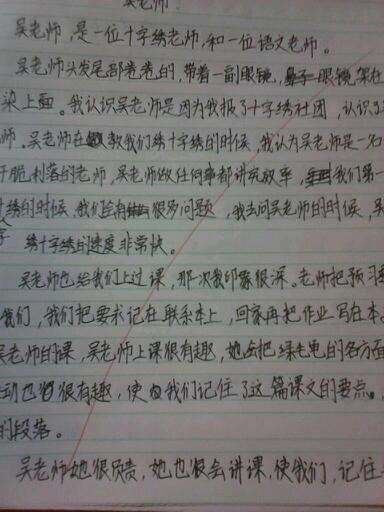 吴老师
吴老师,是一位十字绣老师,和一位语文老师。
吴老师头发尾部卷卷的,带着一副眼镜,眼镜架在
梁上面。我认识吴老师是因为我报了十字绣社团,认识了
师。吴老师在教我们绣十字绣的时候,我认为吴老师是一名
干脆利落的老师,吴老师做任何事都讲究效率,我们第一
绣的时候,我们会有很多问题,我去问吴老师的时候,吴
字 绣十字绣的速度非常快。
吴老师也给我们上过课,那次我印象很深。老师把预习
我们,我们把要求记在联系本上,回家再把作业写在本
吴老师的课,吴老师上课很有趣,她会把绿毛龟的各方面
动也很有趣,使我们记住了这篇课文的要点。
的段落。
吴老师她很负责,她也很会讲课,使我们,记住